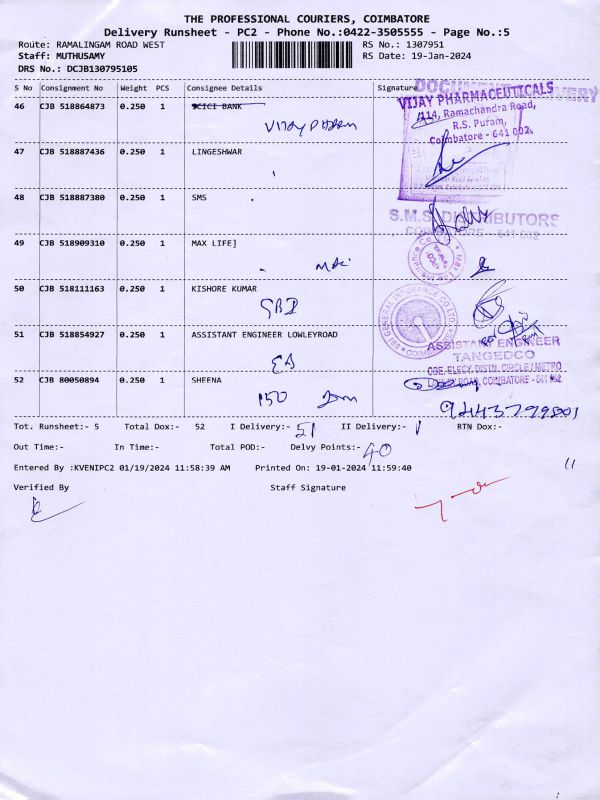 THE PROFESSIONAL COURIERS, COIMBATORE
Delivery Runsheet - PC2 - Phone No.:0422-3505555 - Page No.:5
Route: RAMALINGAM ROAD WEST
RS No.: 1307951
Staff: MUTHUSAMY
RS Date: 19-Jan-2024
DRS No.: DCJB130795105
S No Consignment No Weight PCS Consignee Details Signature
46 CJB 518864873 0.250 1 ICICI BANK
VIJAY PHARM
VIJAY PHARMACEUTICALS
114, Ramachandra Road,
R.S. Puram,
Coimbatore - 641 002.
47 CJB 518887436 0.250 1 LINGESHWAR
48 CJB 518887380 0.250 1 SMS
S.M.S. DISTRIBUTORS
COIMBATORE - 641 002
49 CJB 518909310 0.250 1 MAX LIFE]
50 CJB 518111163 0.250 1 KISHORE KUMAR
SBI
SBI GENERAL INSURANCE CO LTD
51 CJB 518854927 0.250 1 ASSISTANT ENGINEER LOWLEYROAD
ASSISTANT ENGINEER
TANGEDCO
CBE.ELECY.DISTN. CIRCLE/METRO
ROAD, COIMBATORE - 641 002
52 CJB 80050894 0.250 1 SHEENA
150
92443799801
Tot. Runsheet:- 5 Total Dox:- 52 I Delivery:- 51 II Delivery:- 1 RTN Dox:-
Out Time:- In Time:- Total POD:- Delvy Points:- 40
Entered By :KVENIPC2 01/19/2024 11:58:39 AM Printed On: 19-01-2024 11:59:40
Verified By Staff Signature